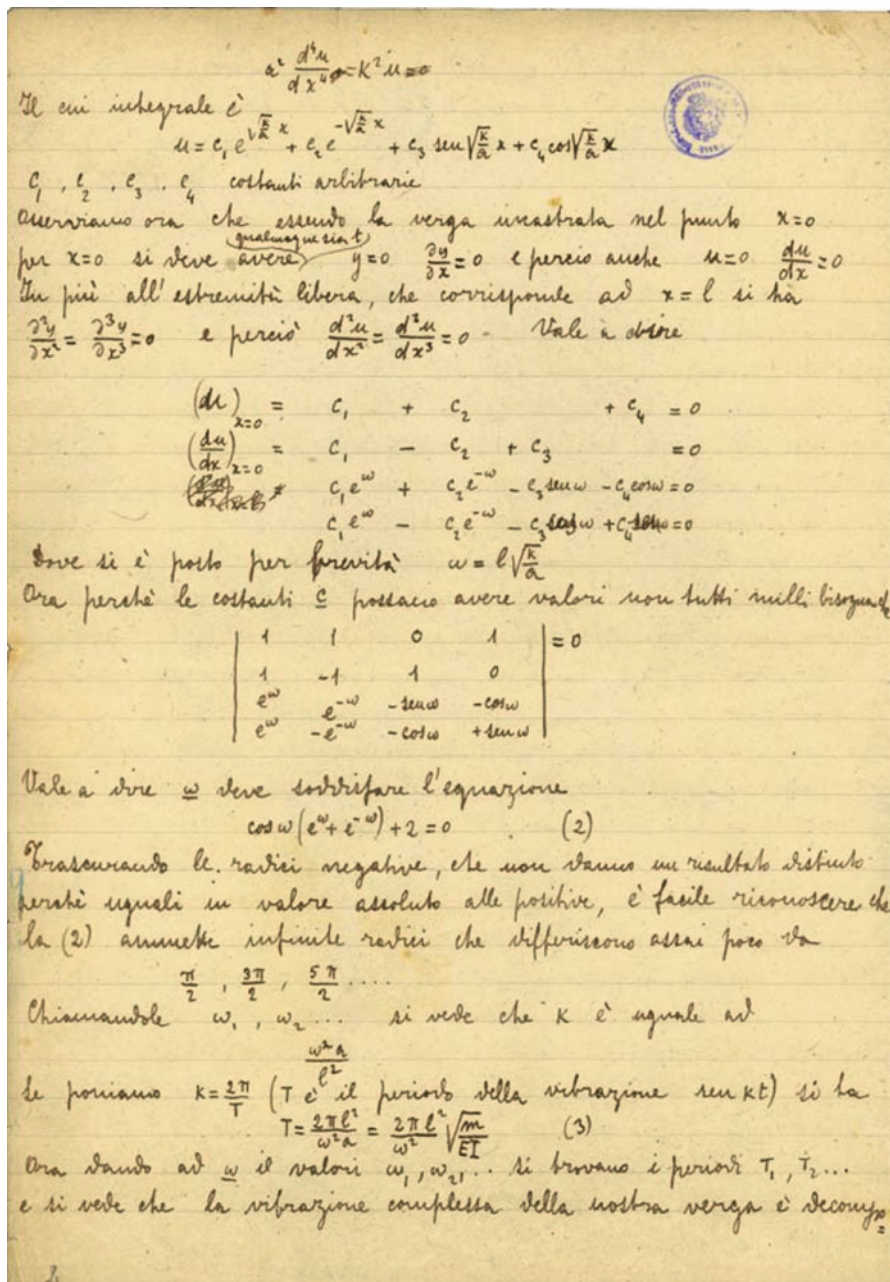 a² d⁴u/dx⁴ = K² u
Il cui integrale è
u = c₁ e^{√(k/a) x} + c₂ e^{-√(k/a) x} + c₃ sen √(k/a) x + c₄ cos √(k/a) x
c₁, c₂, c₃, c₄ costanti arbitrarie
Osserviamo ora che essendo la verga incastrata nel punto x=0
per x=0 si deve avere (qualunque sia t) y=0 ∂y/∂x=0 e perciò anche u=0 du/dx=0
In più all'estremità libera, che corrisponde ad x=l si ha
∂²y/∂x² = ∂³y/∂x³ = 0 e perciò d²u/dx² = d³u/dx³ = 0 - Vale a dire
(u)ₓ₌₀ = c₁ + c₂ + c₄ = 0
(du/dx)ₓ₌₀ = c₁ - c₂ + c₃ = 0
c₁e^ω + c₂e^{-ω} - c₃ sen ω - c₄ cos ω = 0
c₁e^ω - c₂e^{-ω} - c₃ cos ω + c₄ sen ω = 0
Dove si è posto per brevità ω = l√(k/a)
Ora perchè le costanti c possano avere valori non tutti nulli bisogna che
| 1 1 0 1 | = 0
| 1 -1 1 0 |
| e^ω e^{-ω} -sen ω -cos ω |
| e^ω -e^{-ω} -cos ω +sen ω |
Vale a dire ω deve soddisfare l'equazione
cos ω (e^ω + e^{-ω}) + 2 = 0 (2)
Trascurando le radici negative, che non danno un risultato distinto
perchè uguali in valore assoluto alle positive, è facile riconoscere che
la (2) ammette infinite radici che differiscono assai poco da
π/2, 3π/2, 5π/2 ....
Chiamandole ω₁, ω₂ ... si vede che K è uguale ad
ω²a/l²
Se poniamo K = 2π/T (T è il periodo della vibrazione sen kt) si ha
T = 2πl²/ω²a = 2πl²/ω² √(m/EI) (3)
Ora dando ad ω il valori ω₁, ω₂, ... si trovano i periodi T₁, T₂ ...
e si vede che la vibrazione complessa della nostra verga è decompo=